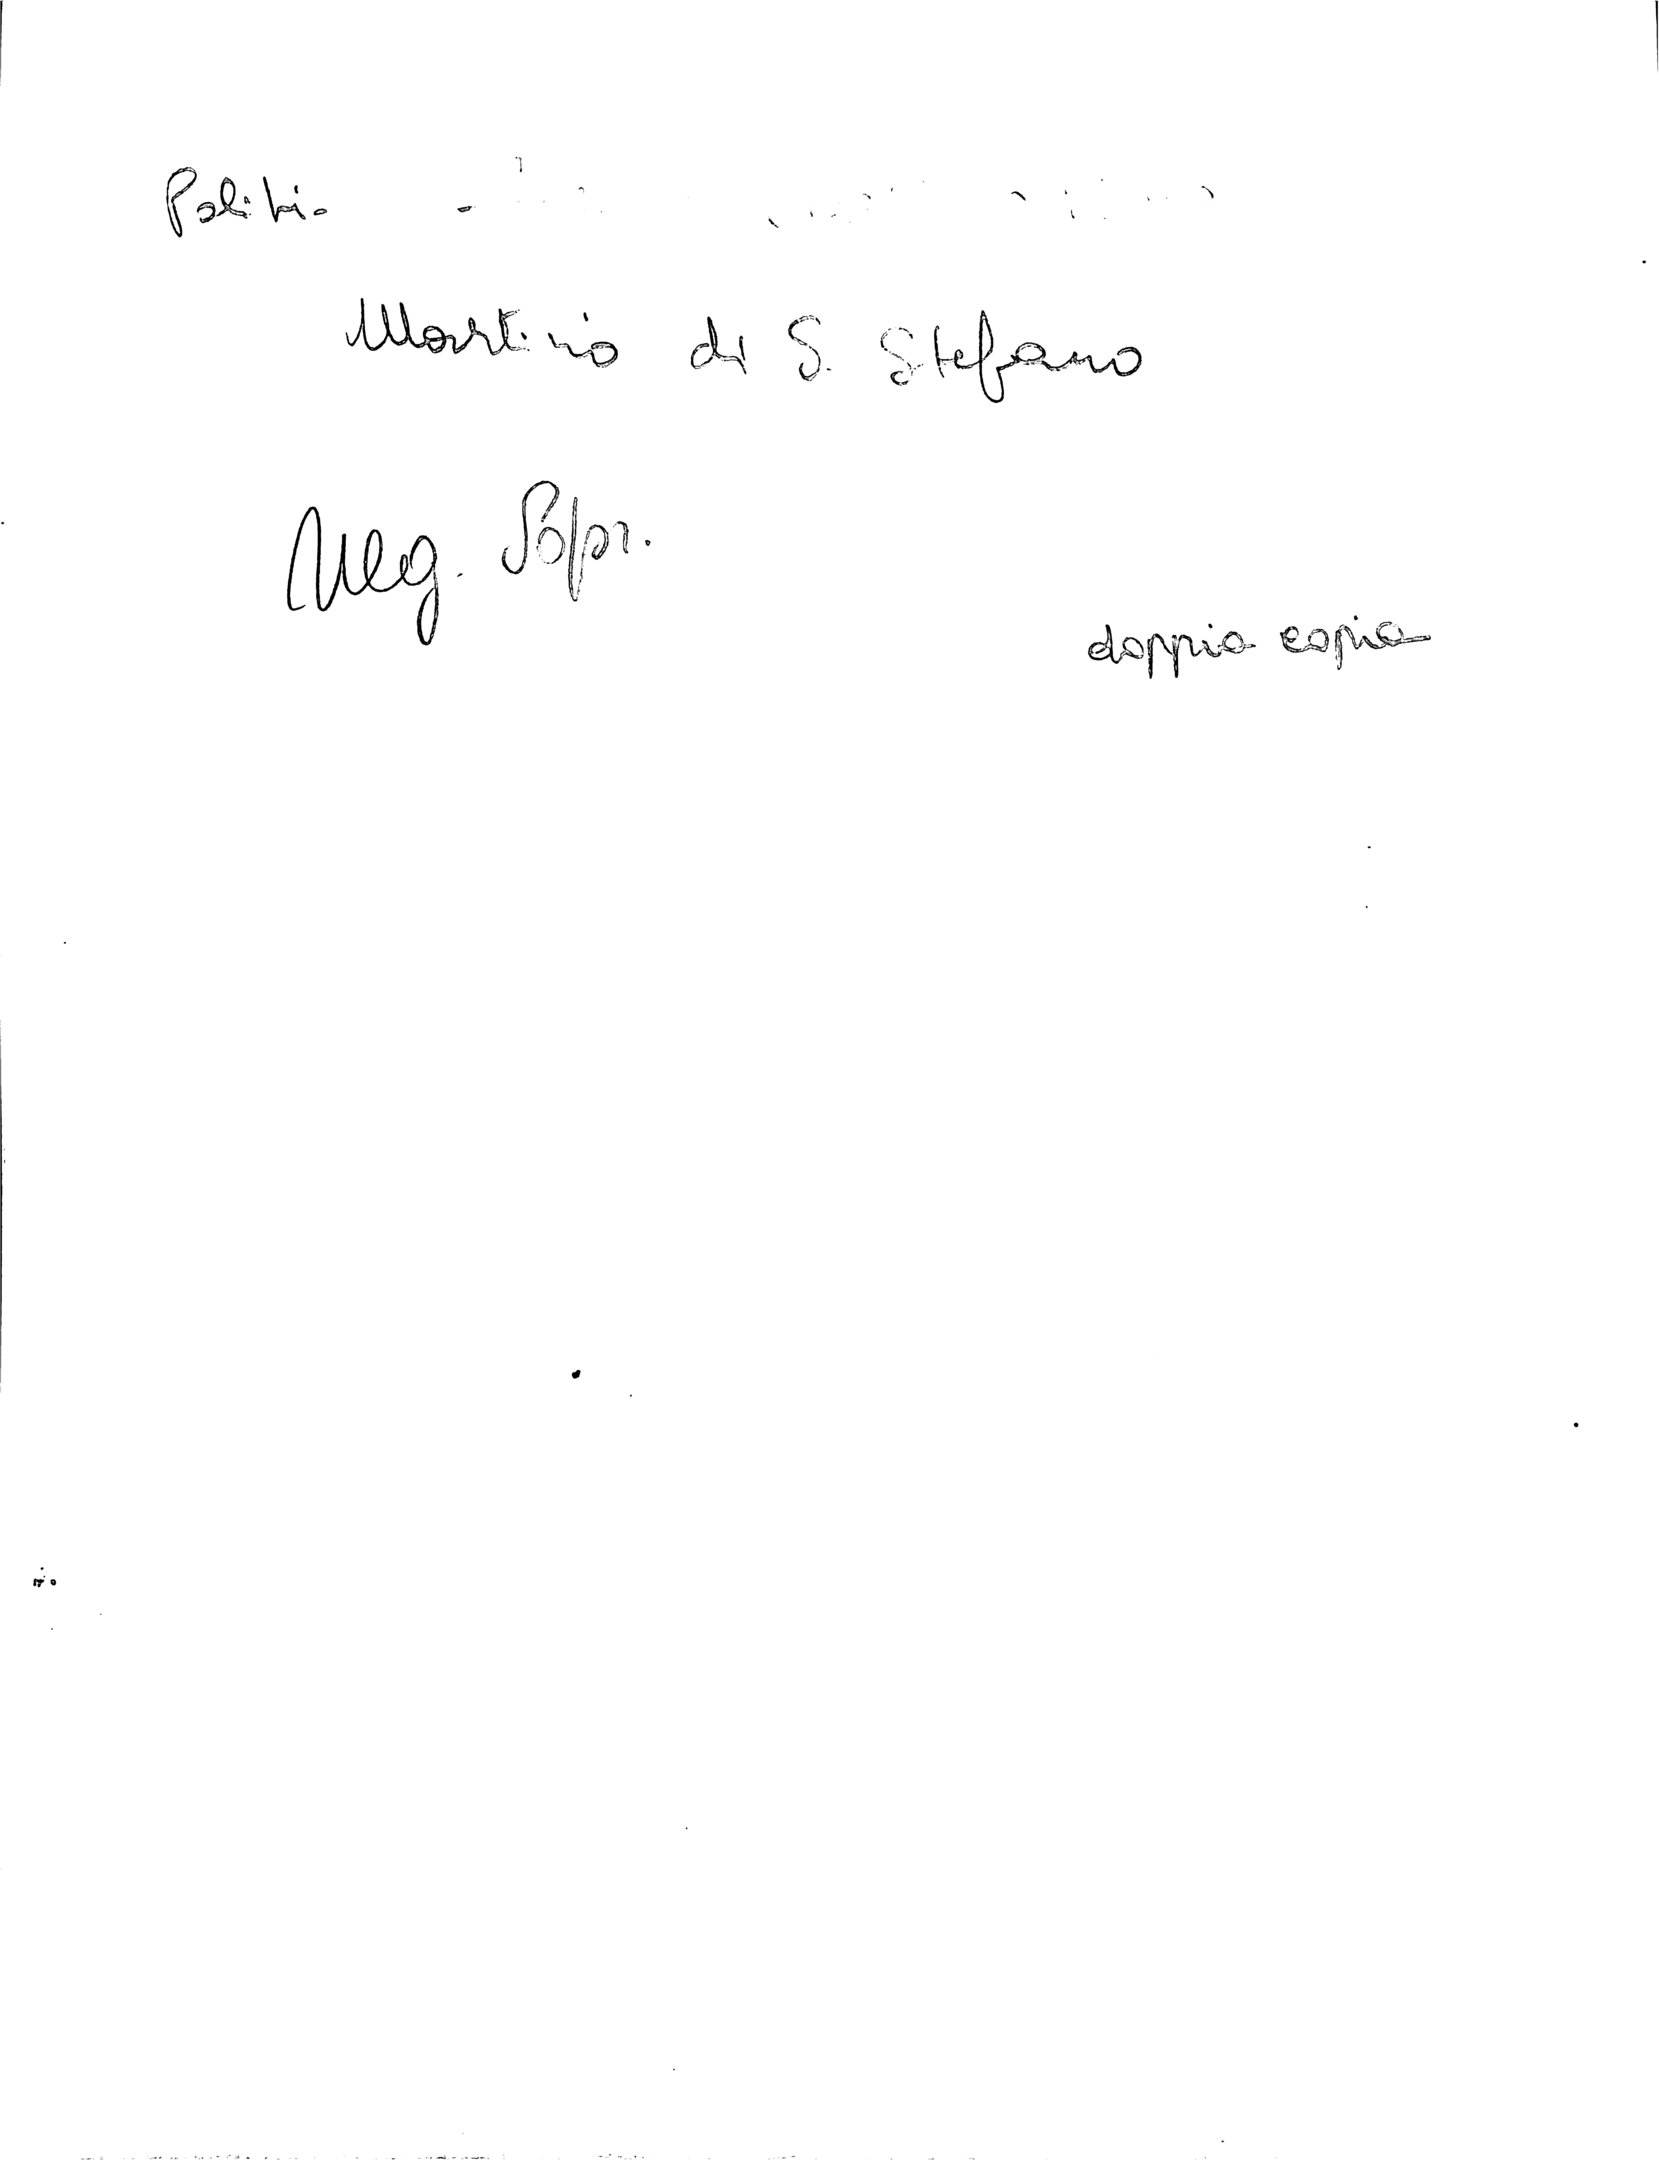 Politi.
Martino di S. Stefano
Neg. Sopr.
doppia copia